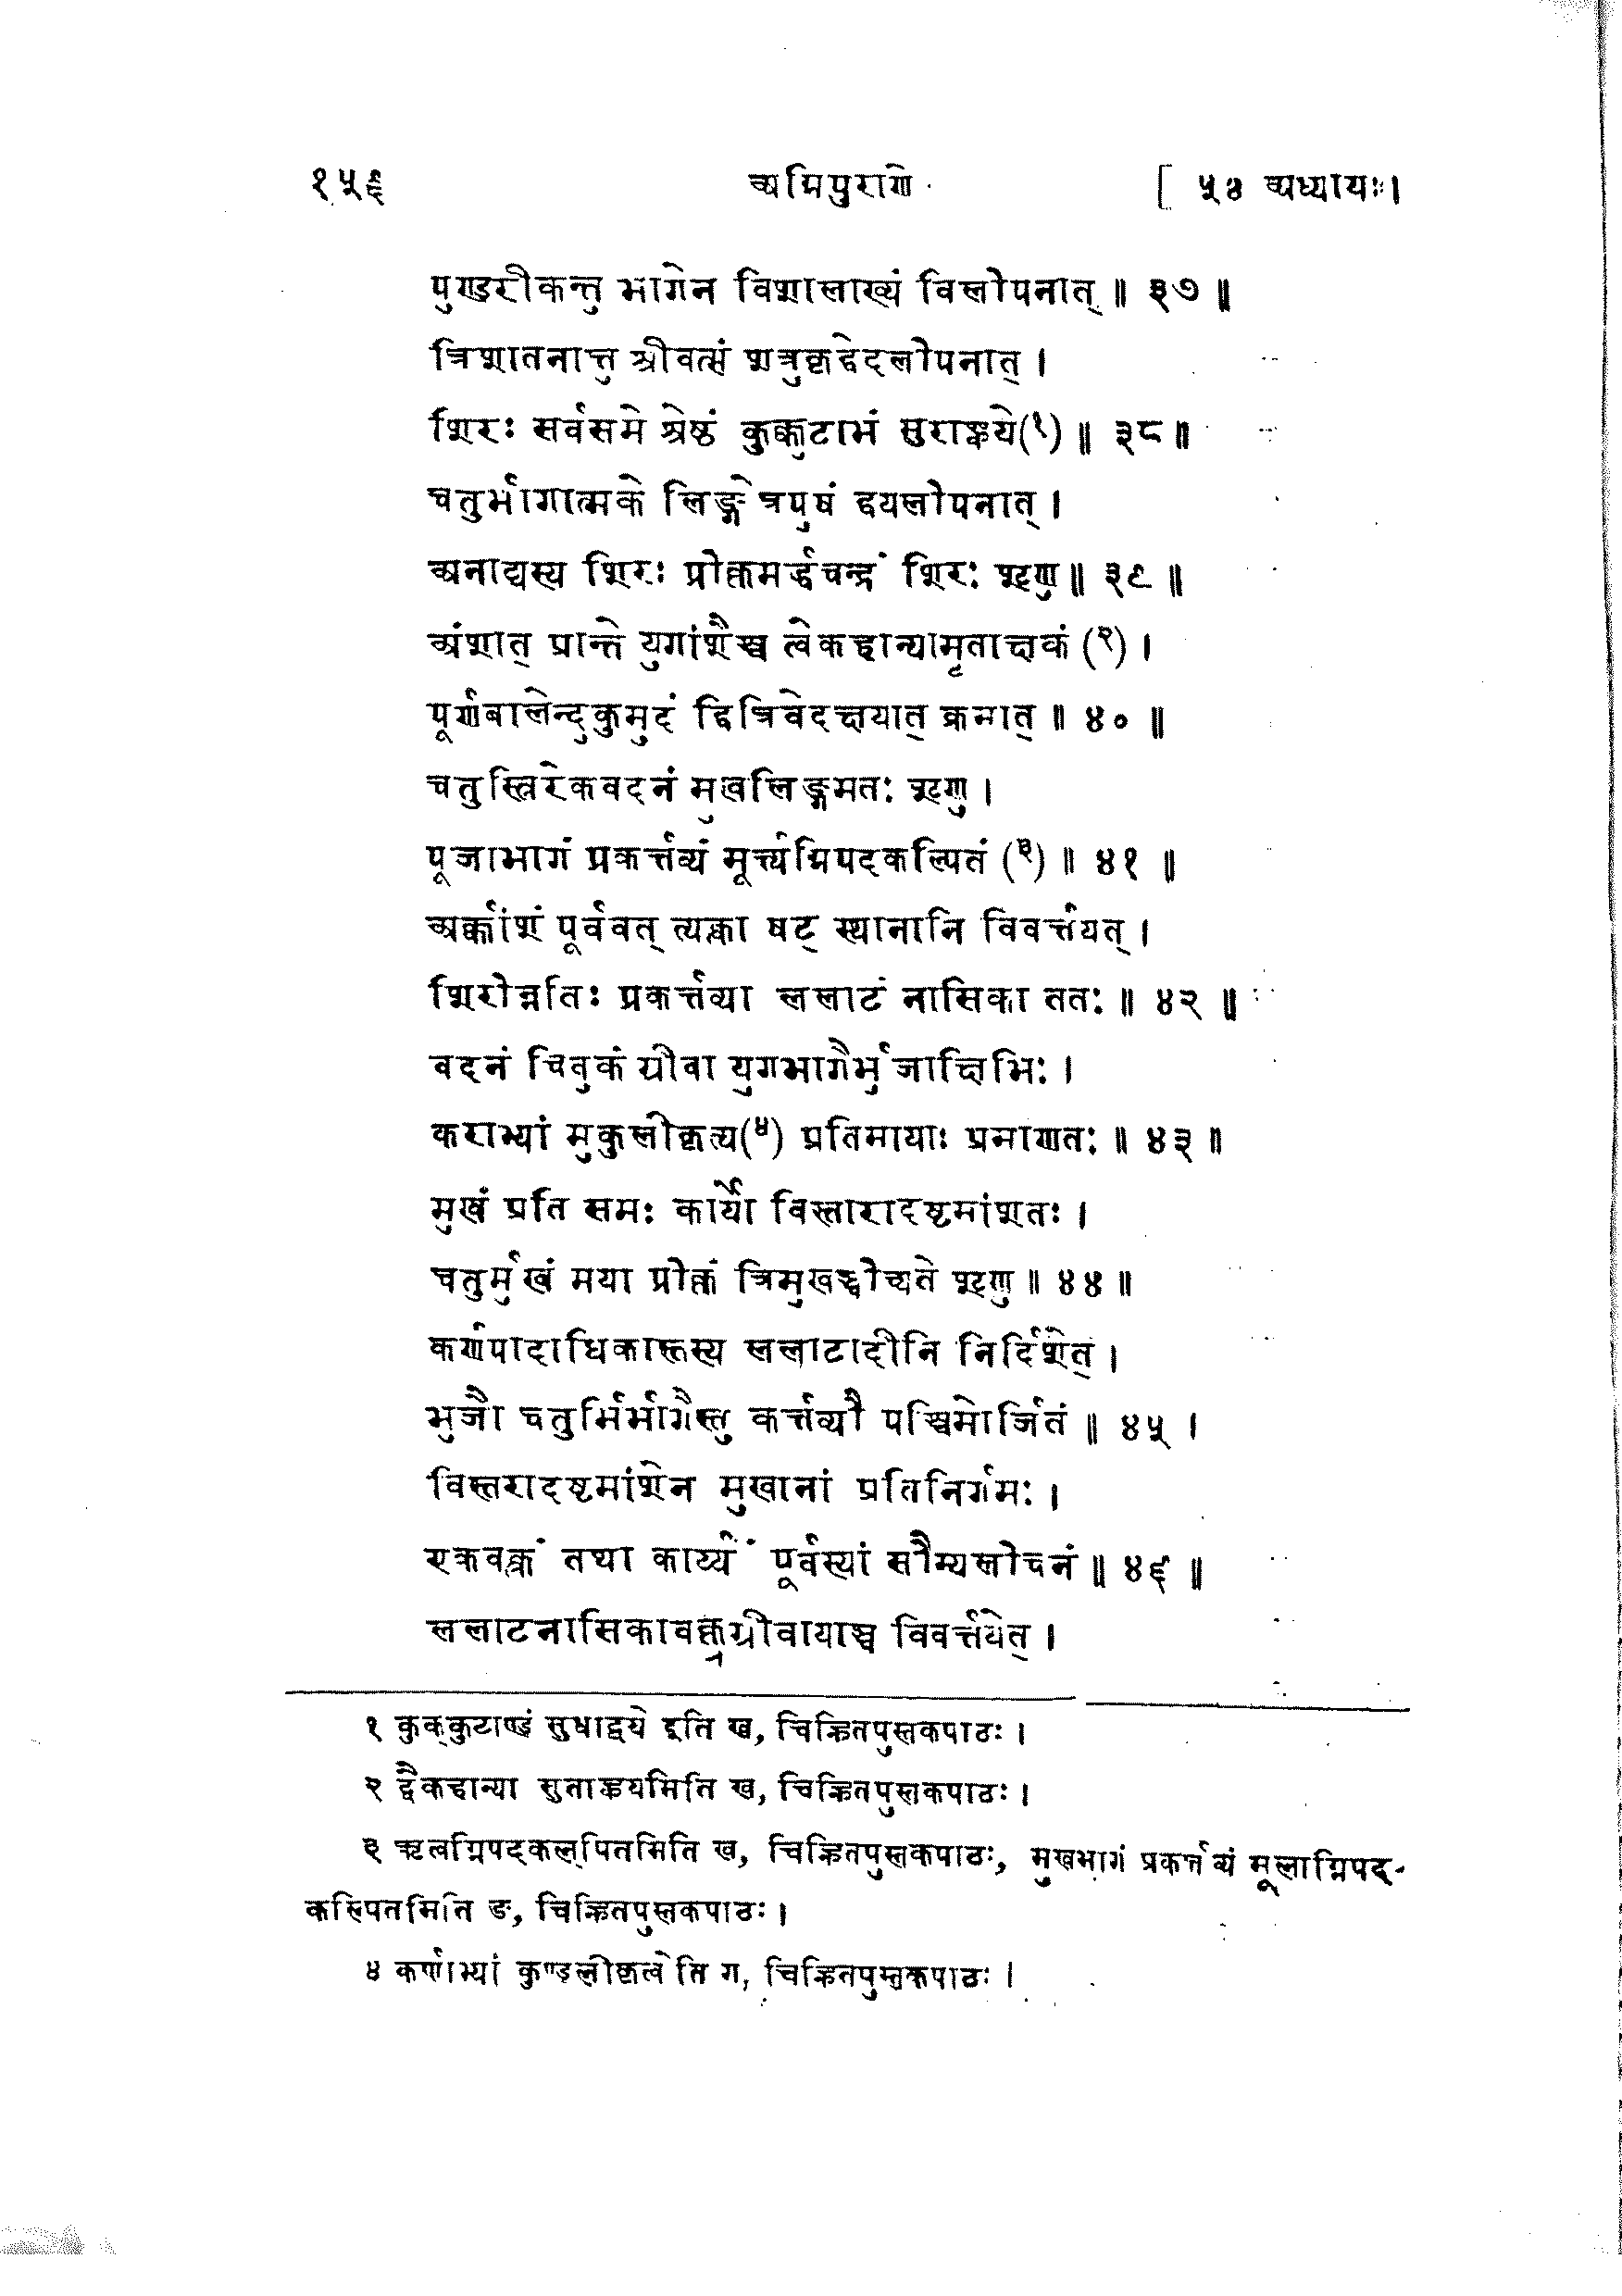 १५६ अग्निपुराणे [ ५४ अध्यायः।
पुण्डरीकन्तु भागेन विशालाख्यं विलोपनात् ॥ ३७ ॥
त्रिशातनात्तु श्रीवत्सं शत्रुकृद्वेदलोपनात् ।
शिरः सर्वसमे श्रेष्ठं कुक्कुटाभं सुराह्वये(१) ॥ ३८ ॥
चतुर्भागात्मके लिङ्गे त्रपुषं द्वयलोपनात् ।
अनाद्यस्य शिरः प्रोक्तमर्द्धचन्द्रं शिरः शृणु ॥ ३९ ॥
अंशात् प्रान्ते युगांशैश्च त्वेकहान्यामृताक्षकं (२) ।
पूर्णबालेन्दुकुमुदं द्वित्रिवेदक्षयात् क्रमात् ॥ ४० ॥
चतुस्त्रिरेकवदनं मुखलिङ्गमतः शृणु ।
पूजाभागं प्रकर्त्तव्यं मूर्त्त्यग्निपदकल्पितं (३) ॥ ४१ ॥
अर्क्कांशं पूर्ववत् त्यक्त्वा षट् स्थानानि विवर्त्तयत् ।
शिरोन्नतिः प्रकर्त्तव्या ललाटं नासिका ततः ॥ ४२ ॥
वदनं चिवुकं ग्रीवा युगभागैर्भुजाक्षिभिः ।
कराभ्यां मुकुलीकृत्य(४) प्रतिमायाः प्रमाणतः ॥ ४३ ॥
मुखं प्रति समः कार्यो विस्तारादष्टमांशतः ।
चतुर्मुखं मया प्रोक्तं त्रिमुखञ्चोच्यते शृणु ॥ ४४ ॥
कर्णपादाधिकास्तस्य ललाटादीनि निर्दिशेत् ।
भुजौ चतुर्भिर्भागैस्तु कर्त्तव्यौ पश्चिमोर्जितं ॥ ४५ ।
विस्तरादष्टमांशेन मुखानां प्रतिनिर्गमः ।
एकवक्त्रं तथा कार्य्यं पूर्वस्यां सौम्यलोचनं ॥ ४६ ॥
ललाटनासिकावक्त्रग्रीवायाञ्च विवर्त्तयेत् ।
१ कुक्कुटाण्डं सुधाद्वये इति ख, चिह्नितपुस्तकपाठः ।
२ द्वैकहान्या सुताह्वयमिति ख, चिह्नितपुस्तकपाठः ।
३ ऋत्वग्निपद्कल्पितमिति ख, चिह्नितपुस्तकपाठः, मुखभागं प्रकर्त्तव्यं मूलाग्निपद-
कल्पितमिति ङ, चिह्नितपुस्तकपाठः ।
४ कर्णाभ्यां कुण्डलीकृत्वेति ग, चिह्नितपुस्तकपाठः ।